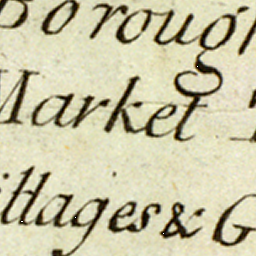 Borough
Market T
illages & G